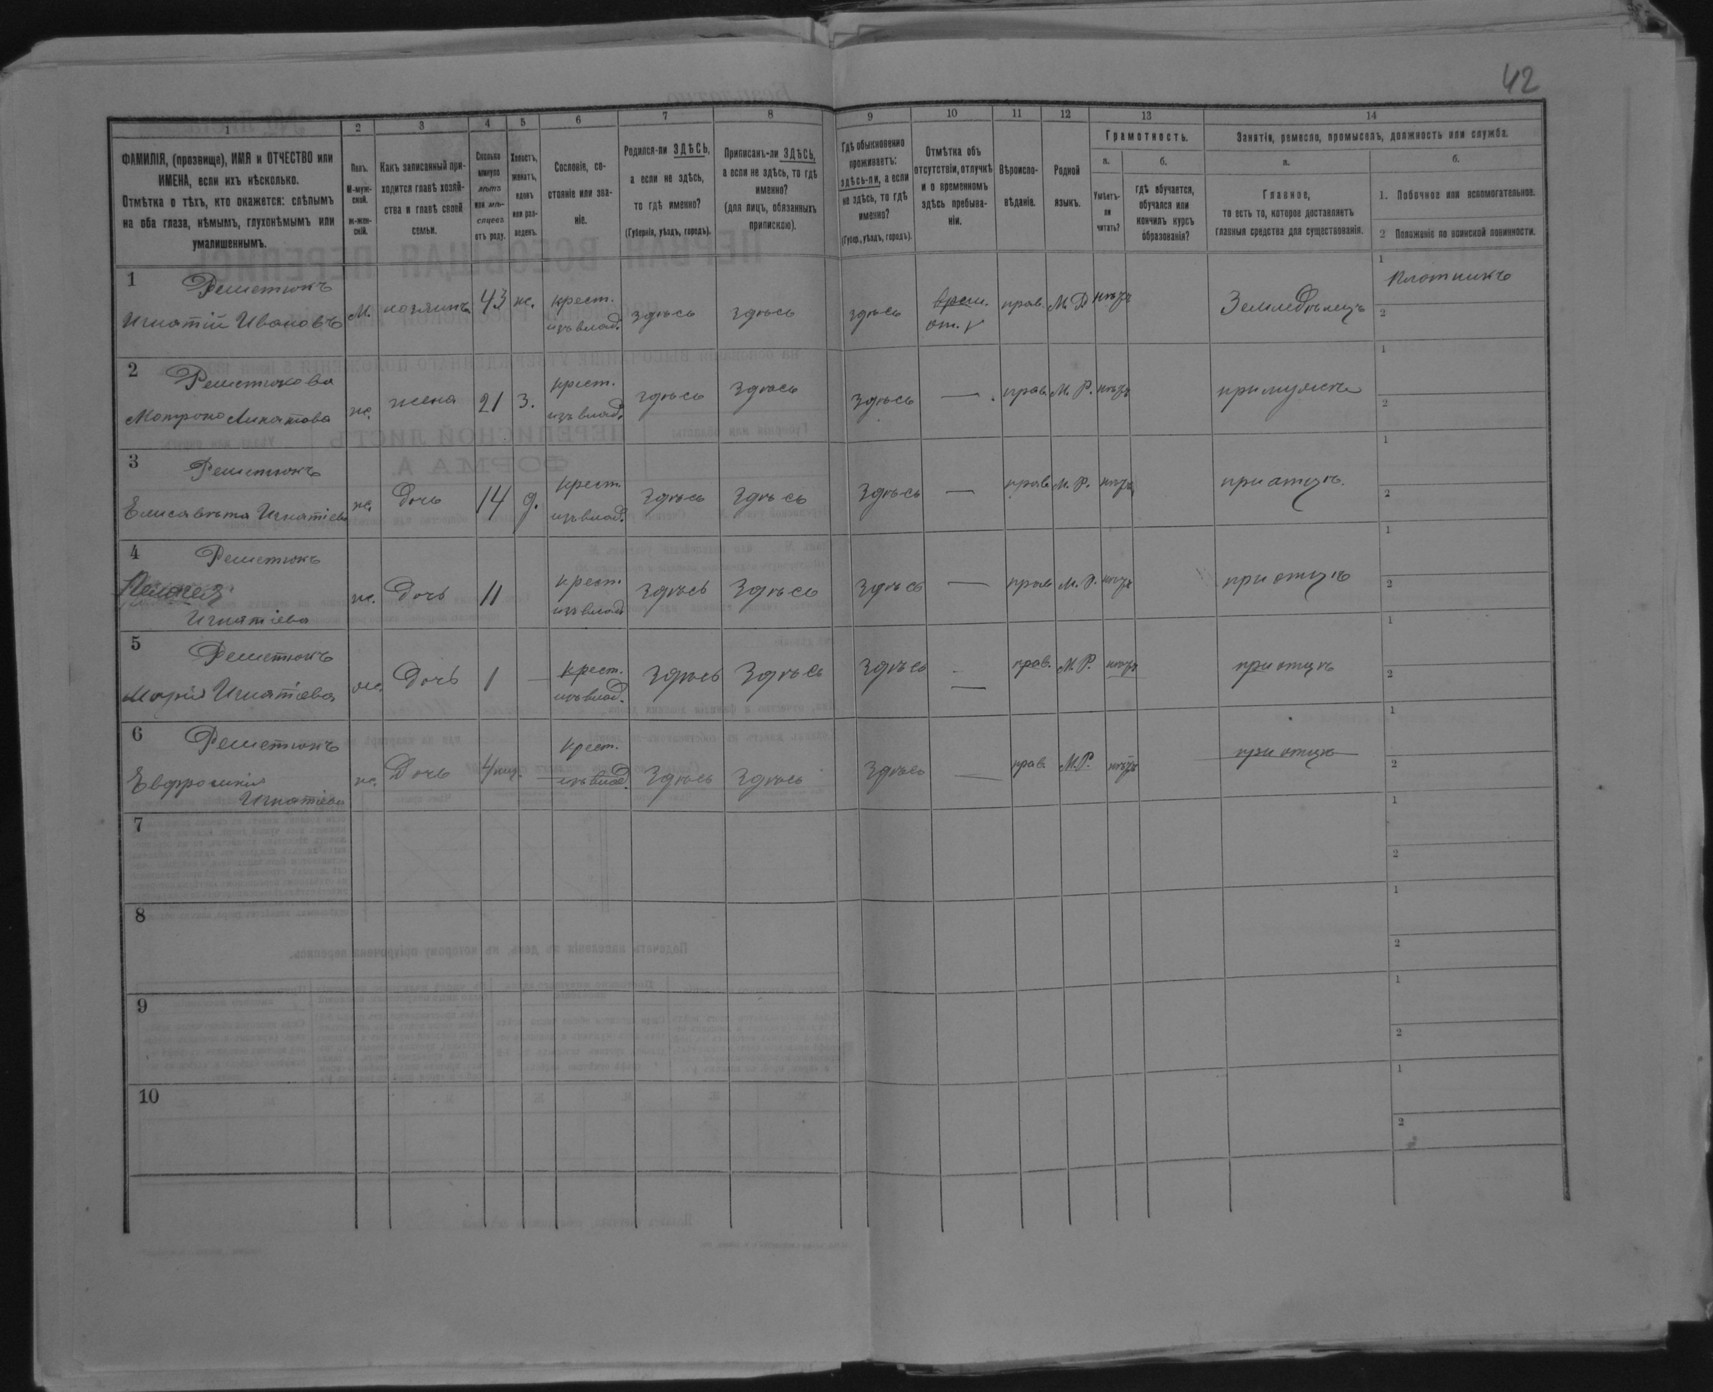 42
1
2
3
4
5
6
7
8
9
10
11
12
13
14
ФАМИЛІЯ, (прозвище), ИМЯ и ОТЧЕСТВО или
ИМЕНА, если ихъ нѣсколько.
Отмѣтка о тѣхъ, кто окажется: слѣпымъ
на оба глаза, нѣмымъ, глухонѣмымъ или
умалишеннымъ.
Полъ.
М-муж-
ской.
ж-жен-
скій.
Какъ записанный при-
ходится главѣ хозяй-
ства и главѣ своей
семьи.
Сколько
минуло
лѣтъ
или мѣ-
сяцевъ
отъ роду.
Холостъ,
женатъ,
вдовъ
или раз-
веденъ.
Сословіе, со-
стояніе или зва-
ніе.
Родился-ли ЗДѢСЬ,
а если не здѣсь,
то гдѣ именно?
(Губернія, уѣздъ, городъ).
Приписанъ-ли ЗДѢСЬ,
а если не здѣсь, то гдѣ
именно?
(для лицъ, обязанныхъ
припискою).
Гдѣ обыкновенно
проживаетъ:
здѣсь-ли, а если
не здѣсь, то гдѣ
именно?
(Губер., уѣздъ, городъ).
Отмѣтка объ
отсутствіи, отлучкѣ
и о временномъ
здѣсь пребыва-
ніи.
Вѣроиспо-
вѣданіе.
Родной
языкъ.
Грамотность.
а.
б.
Умѣетъ-
ли
читать?
гдѣ обучается,
обучался или
кончилъ курсъ
образованія?
Занятія, ремесло, промыселъ, должность или служба.
а.
б.
Главное,
то есть то, которое доставляетъ
главныя средства для существованія.
1. Побочное или вспомогательное.
2 Положеніе по воинской повинности.
1 Решетюкъ
Игнатій Ивановъ м. хозяинъ 43 ж. крест. изъ влад. здѣсь здѣсь здѣсь врем. от. прав. М.Р. нѣтъ Земледѣлецъ 1 Плотникъ
2
2 Решетюкова
Матрона ж. жена 21 з. крест. изъ влад. здѣсь здѣсь здѣсь — прав. М.Р. нѣтъ при мужѣ 1
2
3 Решетюкъ
Елисавѣта Игнатіева ж. дочь 14 д. крест. изъ влад. здѣсь здѣсь здѣсь — прав. М.Р. нѣтъ при отцѣ. 1
2
4 Решетюкъ
Игнатіева ж. дочь 11 крест. изъ влад. здѣсь здѣсь здѣсь — прав. М.Р. нѣтъ при отцѣ 1
2
5 Решетюкъ
Марія Игнатіева ж. дочь 1 — крест. изъ влад. здѣсь здѣсь здѣсь — прав. М.Р. нѣтъ при отцѣ 1
2
6 Решетюкъ
Евфросинія
Игнатіева ж. дочь 4 мѣс. — крест. изъ влад. здѣсь здѣсь здѣсь — прав. М.Р. нѣтъ при отцѣ 1
2
7 1
2
8 1
2
9 1
2
10 1
2